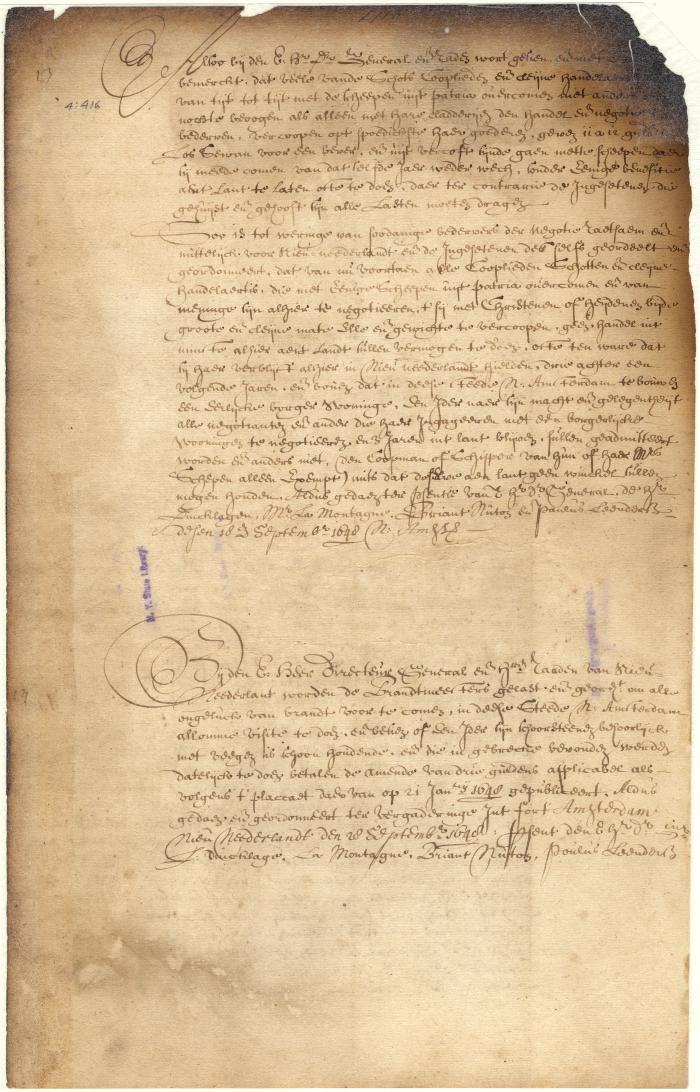 4:416
Alsoo bij den E. Hr Dr General en Raden wort gesien, en met
bemerckt, dat veele vande Schots Cooplieden en cleijne handelaers
van tijt tot tijt met de scheepen uijt patria overcomen met
nochte beoogen als alleen met hare cladderijen den handel en negotie
bederven, vercoopen opt spoedichste haer goederen, geven 11 a 12 gul
Los Sewan voor een bever, en uijt vercoft sijnde gaen mette scheepen daer
sij mede comen van dat selfde Jaer weder wech, sonder Eenige benefitie
aent Lant te Laten ofte te doen, daer ter contrarie de Ingesetenen die
gehuijst en gehooft sijn alle Lasten moeten dragen
Soo is tot weringe van soodanige bedervers der negotie raetsaem en
nuttelijck voor Nieu neederlandt en de Ingesetenen des selfs geordeelt en
geordonneert, dat van nu voortaen alle Cooplieden Schotten en cleijne
handelaerts, die met Eenige Scheepen uijt patria overcomen en van
meeninge sijn alhier te negotieeren, t sij met Christenen of heijdenen bij de
groote en cleijne mate Elle en gewichte te vercoopen, geen handel int
minste alhier aent Landt sullen vermogen te doen, ofte ten ware dat
sij haer verblijf alhier in Nieu neederlandt hielden, drie achter een
volgende Jaren, en boven dat in deese steede N. Amsterdam te bouwen
een Eerlijcke borger Wooninge, Een Ider naer sijn macht en gelegentheijt
alle negotianten en ander die haer Ingageeren met een borgerlijcke
Wooninge te negotieeren, en 3 Jaren int lant blijven, sullen geadmitteert
worden en anders niet, (den Coopman of Schipper van hun of haer
Schepen alleen Exempt) mits dat deselve aen lant geen winckel sullen
mogen houden, Aldus gedaen ter psentie van E Hr Dr General, de hr
Dincklagen, Mr La Montagne, Briant Nuton en Paulus Leenderts
desen 18 Septembr 1648 N. Amst
N. Y. State Library
Bij den E. Heer Directeur General en Hren Raeden van Nieu
Neederlant worden de Brandtmeesters gelast en geordt om alle
ongeluck van brandt voor te comen, in deese Steede N. Amsterdam
allomme visite te doen, en besien of een Ider sijn schoorsteenen behoorlijck
met veegen is schoon houdende, en die in gebreecke bevonden werden
datelijck te doen betalen de amende van drie guldens applicabel als
volgens t placcaet daer van op 21 Janr 1648 gepubliceert, Aldus
gedaen en geordonneert ter vergaderinge Int fort Amsterdam
Nieu Neederlandt den 28 Septembr 1648, psent den E Hr Dr
Dincklage, La Montagne, Briant Nuton, Poulus Leenderts